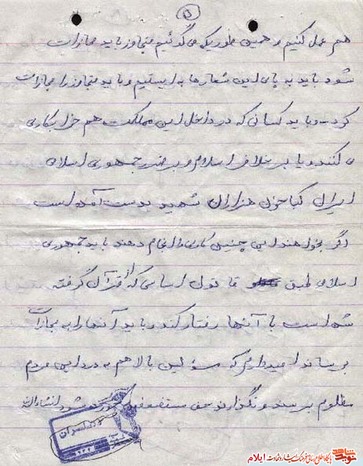 ۵
هم عمل کنیم و همین طور که می گوئیم متجاوز باید مجازات
شود باید به پای این شعارها به ایستیم و باید متجاوز را مجازات
کرد و باید کسانی که در داخل این مملکت هم خرابکاری
می کنند و یا بر خلاف اسلام و بر ضد جمهوری اسلامی
ایران که با خون هزاران شهید بدست آمده است
اگر بخواهند این چنین کاری را انجام دهند باید جمهوری
اسلامی طبق قانون اساسی که از قرآن گرفته
شده است با آنها رفتار کند و باید آنها را به مجازات
برساند امیدواریم که مسئولین بالا هم به درد این مردم
مظلوم برسند و نگذارند حق مستضعفین شود انشاءالله
ایلام